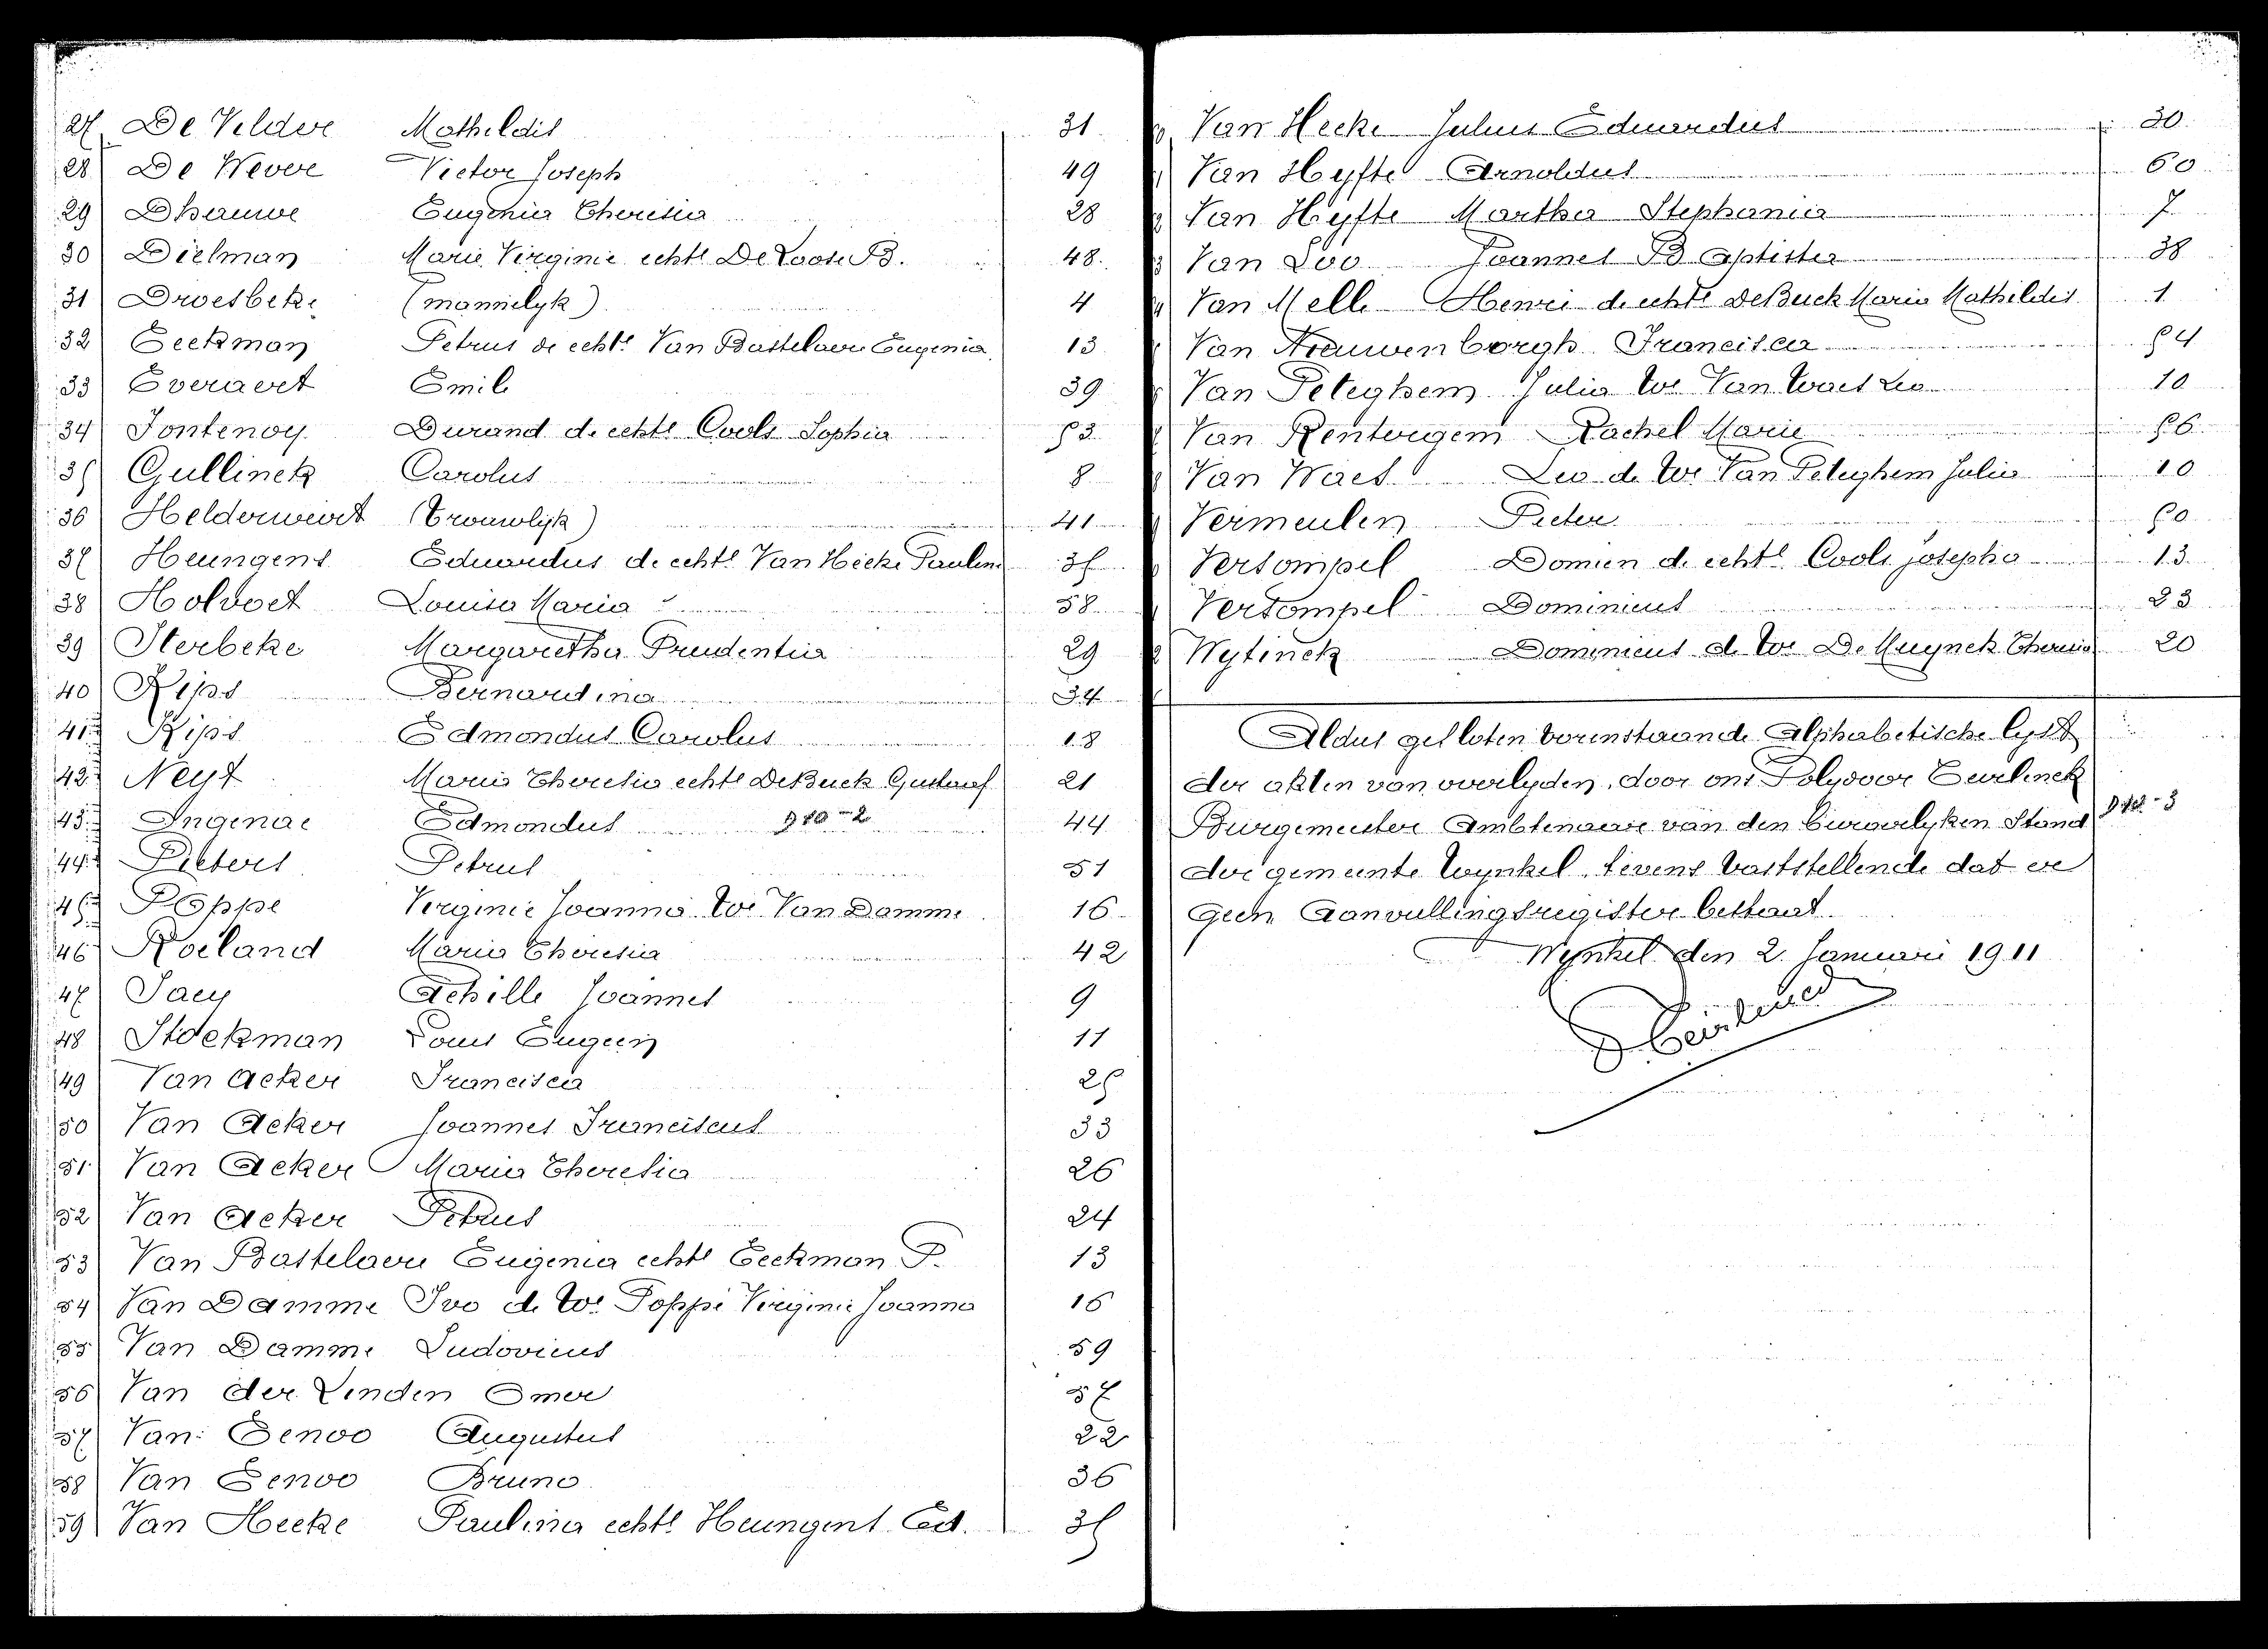 27 De Veldre Mathildis 31
28 De Wever Victor Joseph 49
29 Dhauwe Eugenia Theresia 28
30 Dielman Marie Virginie echte De Loose B. 48
31 Droesbeke (mannelyk) 4
32 Eeckman Petrus de echte Van Bastelaere Eugenia 13
33 Everaert Emile 39
34 Fontenoy Durand de echte Cools Sophia 53
35 Gullinck Carolus 8
36 Helderweirt (Vrouwlijk) 41
37 Heungens Eduardus de echte Van Hecke Paulina 35
38 Holvoet Louisa Maria 58
39 Sterbeke Margaretha Prudentia 29
40 Kips Bernardina
41 Kips Edmondus Carolus 18
42 Neyt Maria Theresia echte De Buck Gustaaf 21
43 Ingenae Edmondus 910-2 44
44 Pieters Petrus 51
45 Poppe Virginie Joanna We Van Damme 16
46 Roeland Maria Theresia 42
47 Saey Achille Joannes 9
48 Stockman Louis Eugeen 11
49 Van Acker Francisca 25
50 Van Acker Joannes Franciscus 33
51 Van Acker Maria Theresia 26
52 Van Acker Petrus 24
53 Van Bastelaere Eugenia echte Eeckman P. 13
54 Van Damme Ivo de We Poppe Virginie Joanna 16
55 Van Damme Ludovicus 59
56 Van der Linden Omer 57
57 Van Eenoo Augustus 22
58 Van Eenoo Bruno 36
59 Van Hecke Paulina echte Heungens Ed. 35
Van Hecke Julius Eduardus 30
Van Hyfte Arnoldus 60
Van Hyfte Martha Stephania 7
Van Loo Joannes Baptista 38
Van Melle Henri de echte De Buck Maria Mathildis 1
Van Nieuwenborgh Francisca 54
Van Peteghem Julia We Van Waes Leo 10
Van Renterigem Rachel Marie 56
Van Waes Leo de We Van Peteghem Julia 10
Vermeulen Pieter 50
Verstompel Domien de echte Cools Josepha 13
Verstompel Dominicus 23
Wytinck Dominicus de We De Muynck Theresia 20
Aldus gesloten vorenstaande Alphabetische lyst
der akten van overlyden, door ons Polydoor
Burgemeester Ambtenaar van den burgerlyken Stand 912-3
der gemeente Wynkel, tevens vaststellende dat er
geen Aanvullingsregister bestaat.
Wynkel den 2 Januari 1911